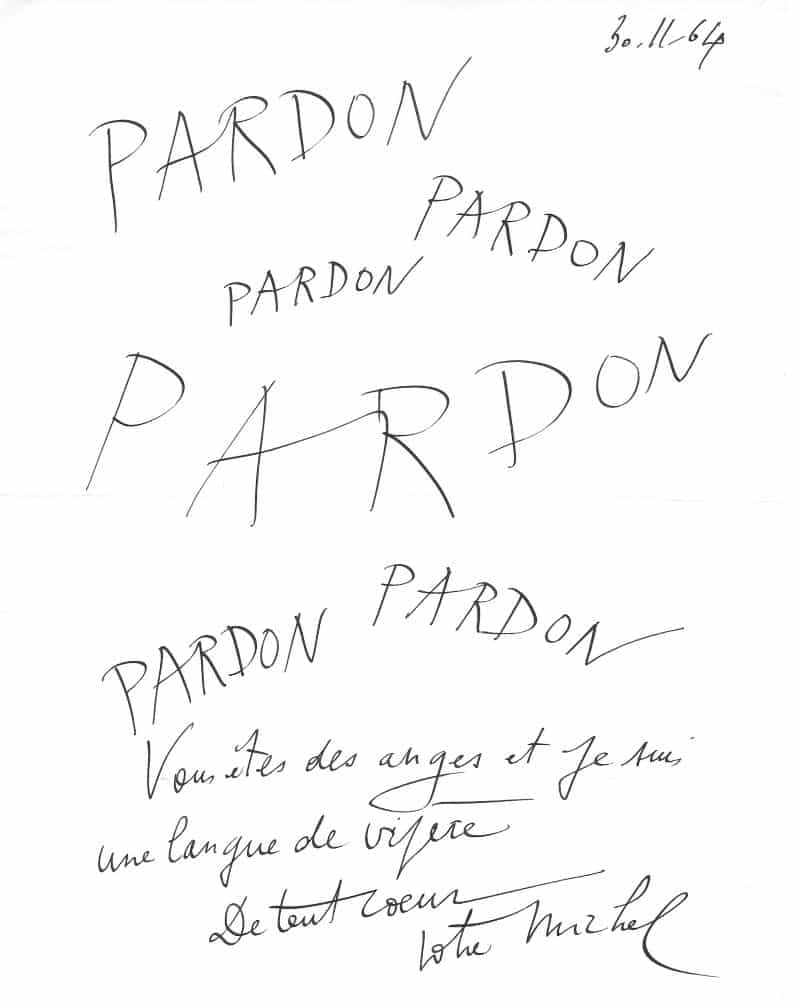 30.11-64
PARDON
PARDON
PARDON
PARDON
PARDON
PARDON
Vous êtes des anges et je suis
une langue de vipère
De tout coeur
Votre Michel